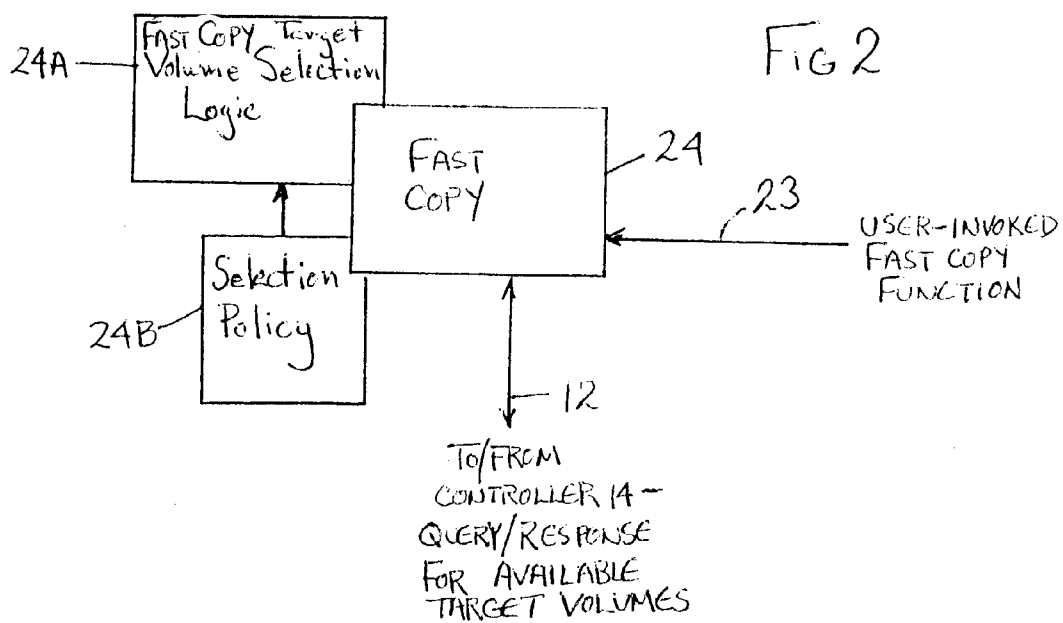 Fig 2
24A
FAST COPY Target
Volume Selection
Logic
FAST
COPY
24
23
USER-INVOKED
FAST COPY
FUNCTION
Selection
Policy
24B
12
TO/FROM
CONTROLLER 14-
QUERY/RESPONSE
FOR AVAILABLE
TARGET VOLUMES